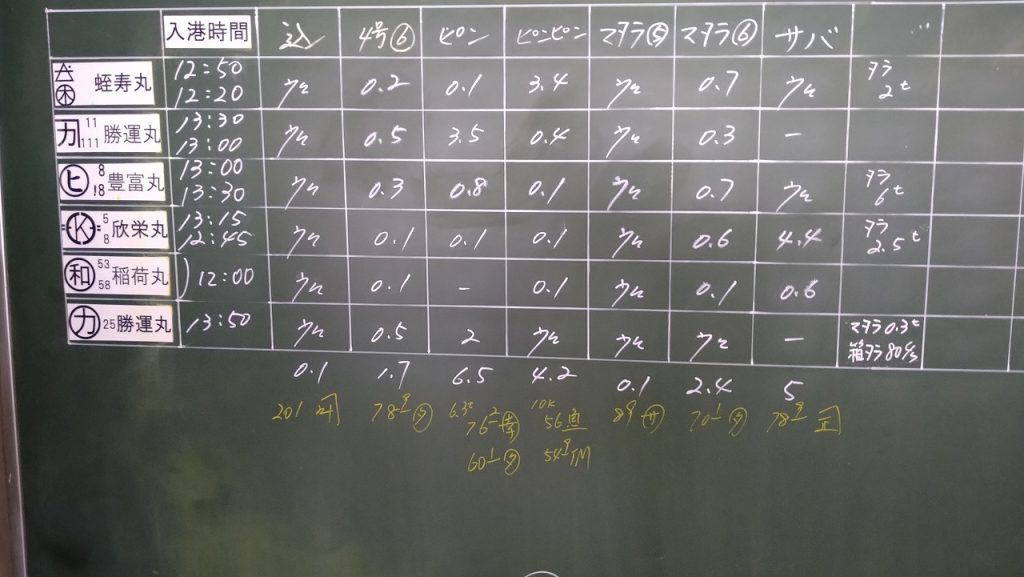 入港時間 込 4号⑥ ピン ピンピン マダラ⑤ マダラ⑥ サバ
蛭寿丸 12:50 12:20 ウス 0.2 0.1 3.4 ウス 0.7 ウス タラ 2t
カ 11 111 勝運丸 13:30 13:00 ウス 0.5 3.5 0.4 ウス 0.3 −
ヒ 8 18 豊富丸 13:00 13:30 ウス 0.3 0.8 0.1 ウス 0.7 ウス タラ 6t
K 5 8 欣栄丸 13:15 12:45 ウス 0.1 0.1 0.1 ウス 0.6 4.4 タラ 2.5t
和 53 58 稲荷丸 ) 12:00 ウス 0.1 − 0.1 ウス 0.1 0.6
カ 25 勝運丸 13:50 ウス 0.5 2 ウス ウス ウス − マダラ 0.3t
箱タラ 80
0.1 1.7 6.5 4.2 0.1 2.4 5
201 78 6.3t 10K 89 70 78
76 56
60 54 TM